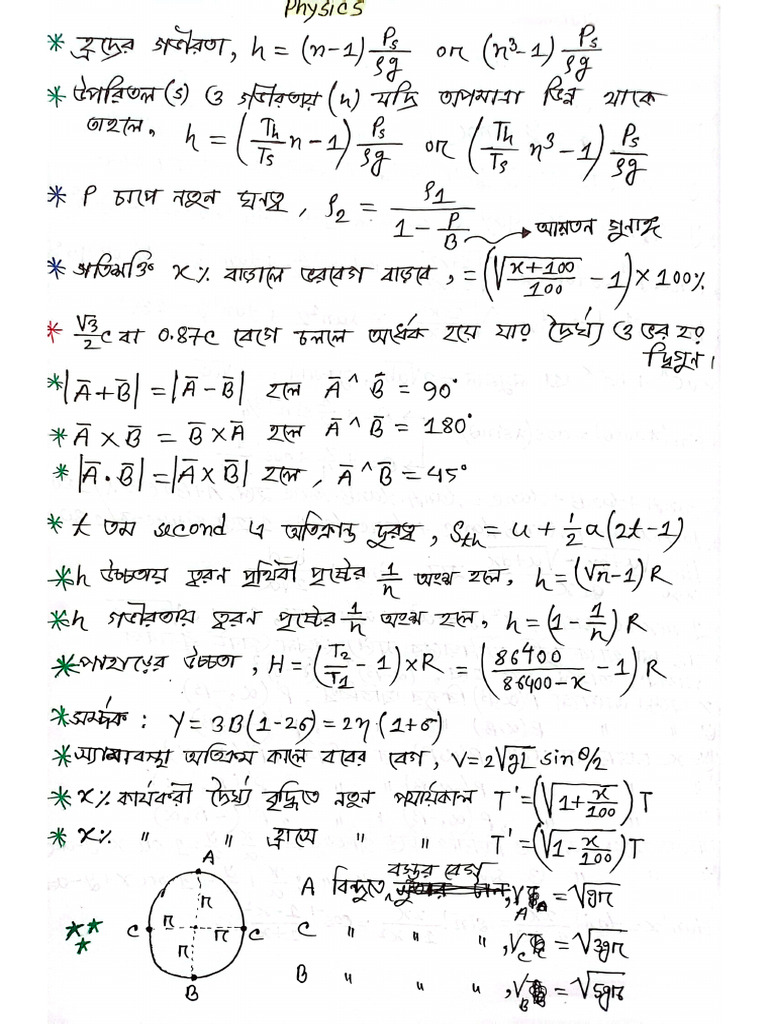 Physics
* হ্রদের গভীরতা, h = (n-1) Ps/ρg or (n³-1) Ps/ρg
* উপরিতল (s) ও গভীরতায় (h) যদি তাপমাত্রা ভিন্ন থাকে
তাহলে, h = (Th/Ts n - 1) Ps/ρg or (Th/Ts n³ - 1) Ps/ρg
* P চাপে নতুন ঘনত্ব, ρ2 = ρ1/(1 - P/B) → আয়তন গুনাঙ্ক
* গতিশক্তি x% বাড়ালে ভরবেগ বাড়বে, = (√((x+100)/100) - 1) × 100%
* √3/2 c বা 0.87c বেগে চললে অর্ধেক হয়ে যায় দৈর্ঘ্য ও ভর হয়
দ্বিগুন।
* |A̅+B̅| = |A̅-B̅| হলে A̅ ^ B̅ = 90°
* A̅ × B̅ = B̅ × A̅ হলে A̅ ^ B̅ = 180°
* |A̅ · B̅| = |A̅ × B̅| হলে, A̅ ^ B̅ = 45°
* t তম second এ অতিক্রান্ত দুরত্ব, Sth = u + 1/2 a(2t-1)
* h উচ্চতায় ত্বরন পৃথিবী পৃষ্ঠের 1/n অংশ হলে, h = (√n-1) R
* h গভীরতায় ত্বরন পৃষ্ঠের 1/n অংশ হলে, h = (1 - 1/n) R
* পাহাড়ের উচ্চতা, H = (T2/T1 - 1) × R = (86400/(86400-x) - 1) R
* সম্পর্ক: Y = 3B(1-2σ) = 2η(1+σ)
* সাম্যাবস্থা অতিক্রম কালে ববের বেগ, V = 2√gL sin θ/2
* x% কার্যকরী দৈর্ঘ্য বৃদ্ধিতে নতুন পর্যায়কাল T' = (√(1 + x/100)) T
* x% " " হ্রাসে " " T' = (√(1 - x/100)) T
A বিন্দুতে বস্তুর বেগ, VA = √gr
C " " ", VC = √3gr
B " " ", VB = √5gr
A
r
C r r C
r
B